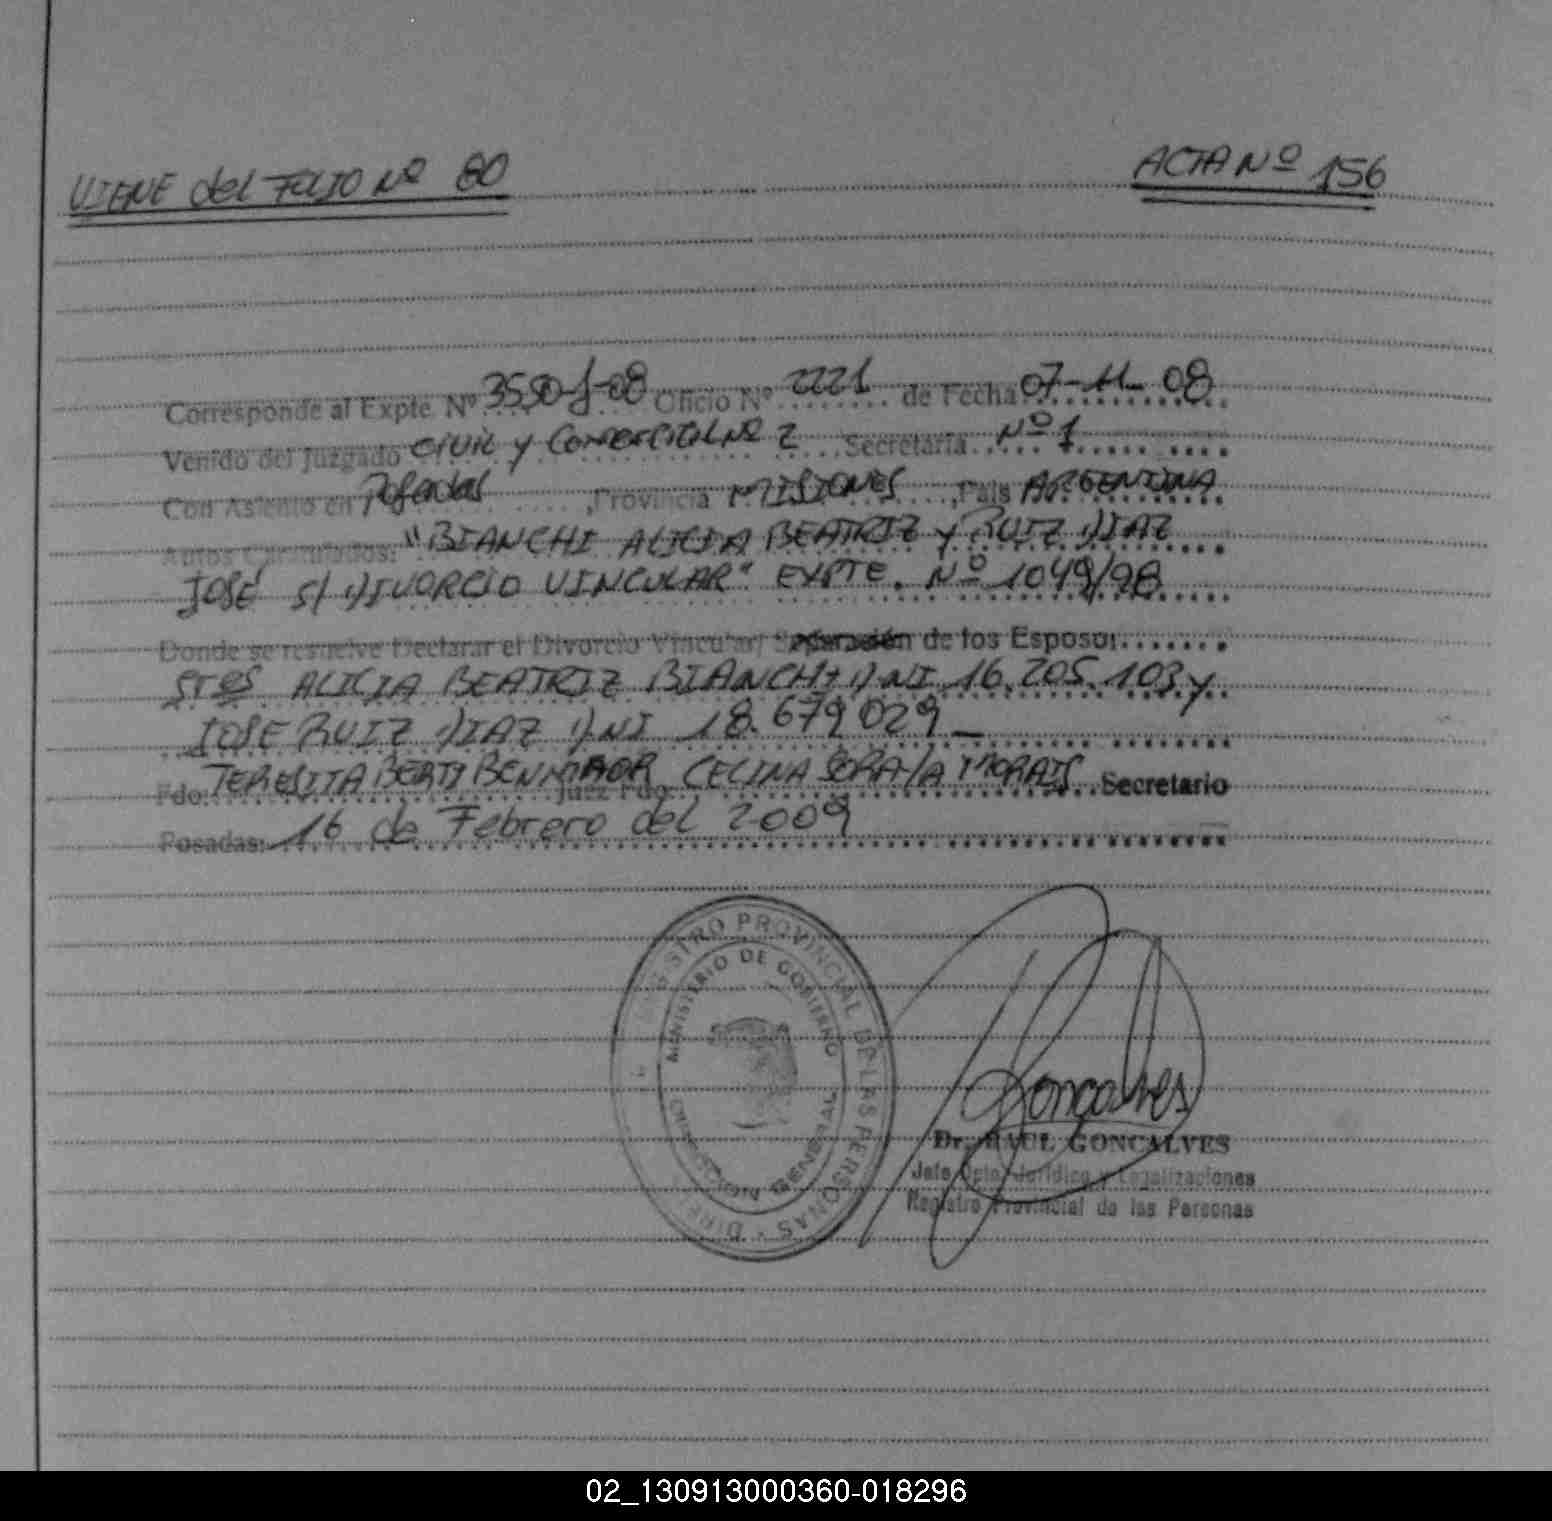 VIENE del FOLIO Nº 80
ACTA Nº 156
Corresponde al Expte. Nº 3550-J-08 Oficio Nº 2221 de Fecha 07-11-08
Venido del Juzgado Civil y Comercial Nº 2 Secretaria Nº 1
Con Asiento en Posadas, Provincia MISIONES, País ARGENTINA
Autos Caratulados: "BIANCHI ALICIA BEATRIZ y RUIZ DIAZ
JOSÉ S/ DIVORCIO VINCULAR" EXPTE. Nº 1049/98
Donde se resuelve Declarar el Divorcio Vincular/ Separación de los Esposos
Sres ALICIA BEATRIZ BIANCHI DNI 16.205.103 y
JOSE RUIZ DIAZ DNI 18.679029
Fdo: TERESITA Juez Fdo: CELINA MORAIS Secretario
Posadas: 16 de Febrero del 2009
REGISTRO PROVINCIAL DE LAS PERSONAS
MINISTERIO DE GOBIERNO
DIRECCION GENERAL
Goncalves
Dr. RAUL GONCALVES
Jefe Dpto. Jurídico y Legalizaciones
Registro Provincial de las Personas
02_130913000360-018296